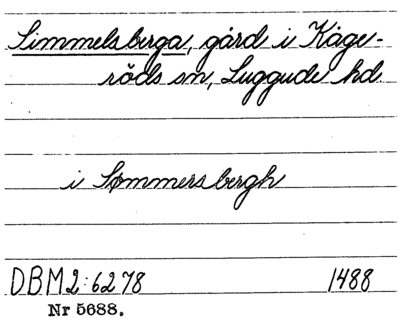 Simmelsberga, gård i Kåge-
röds sn, Luggude hd.
i Sømmersbergh
DBM2:6278 1488
Nr 5688.